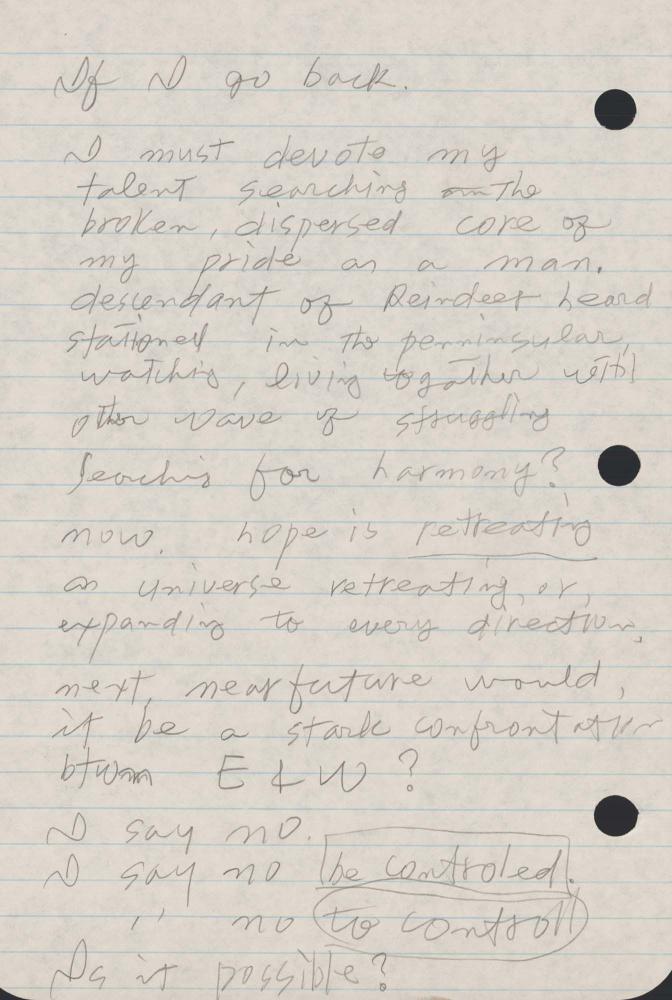 If I go back.
I must devote my
talent searching on the
broken, dispersed core of
my pride as a man.
descendant of Reindeer heard
stationed in the penninsular,
watching, living together with
other wave of struggling
Searching for harmony?
now. hope is retreating
as universe retreating, or,
expanding to every direction.
next, near future would,
it be a stark confrontation
btwn E & W ?
I say no.
I say no be controled.
" no to controll
Is it possible?